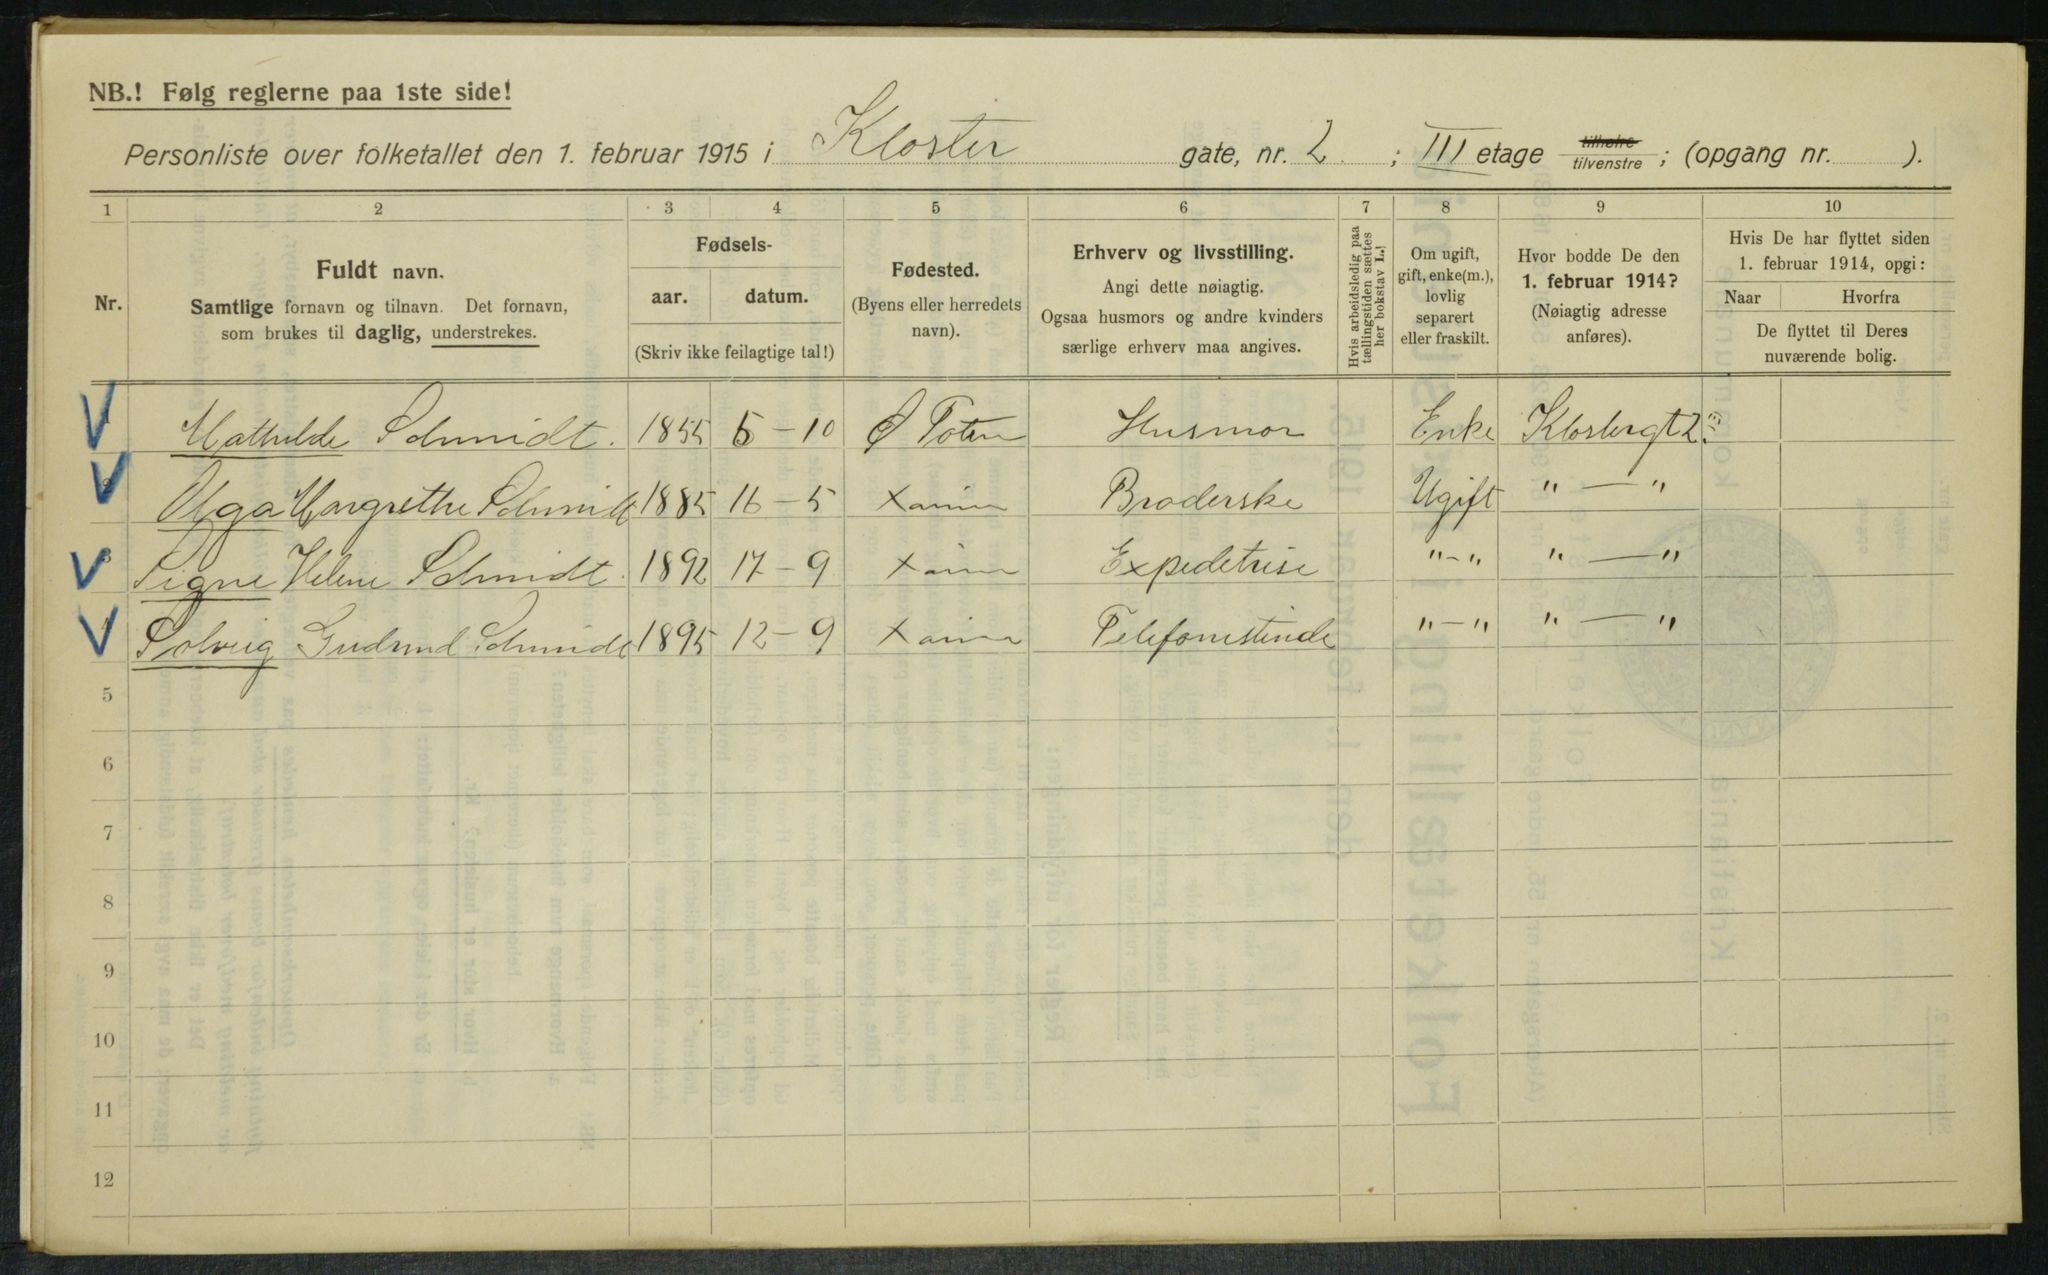 NB.! Følg reglerne paa 1ste side!
Personliste over folketallet den 1. februar 1915 i Kloster gate, nr. 2 ; III etage tilhøire tilvenstre ; (opgang nr. ).
1 2 3 4 5 6 7 8 9 10
Nr.
Fuldt navn.
Samtlige fornavn og tilnavn. Det fornavn,
som brukes til daglig, understrekes.
Fødsels-
aar. datum.
(Skriv ikke feilagtige tal!)
Fødested.
(Byens eller herredets
navn).
Erhverv og livsstilling.
Angi dette nøiagtig.
Ogsaa husmors og andre kvinders
særlige erhverv maa angives.
Hvis arbeidsledig paa
tællingstiden sættes
her bokstav L.!
Om ugift,
gift, enke(m.),
lovlig
separert
eller fraskilt.
Hvor bodde De den
1. februar 1914?
(Nøiagtig adresse
anføres).
Hvis De har flyttet siden
1. februar 1914, opgi:
Naar Hvorfra
De flyttet til Deres
nuværende bolig.
1 Mathilde Schmidt. 1855 5-10 Ø Toten Husmor Enke Klostergt 2
2 Olga Margrethe Schmidt 1885 16-5 Xania Broderske Ugift " — "
3 Signe Helene Schmidt. 1892 17-9 Xania Expeditrise "-" " — "
4 Solveig Gudrund Schmidt 1895 12-9 Xania Telefonistinde "-" " — "
5
6
7
8
9
10
11
12